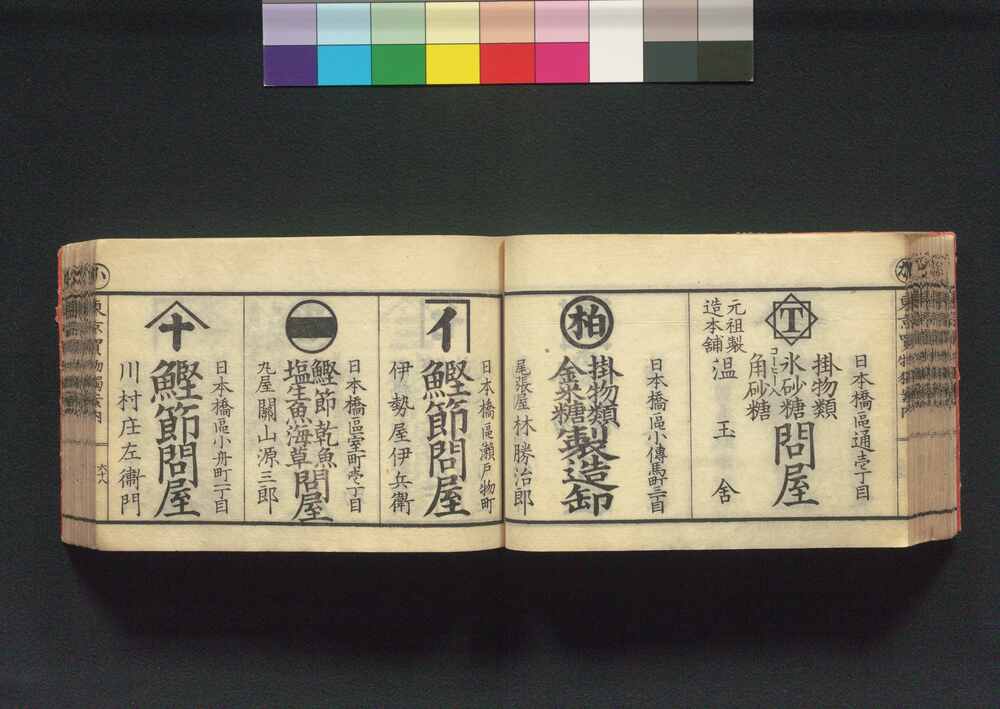 日本橋區通壹丁目
T
掛物類
氷砂糖
コーヒー入
角砂糖
問屋
元祖製
造本舗
温玉舍
日本橋區小傳馬町三丁目
柏
掛物類
金米糖
製造卸
尾張屋 林勝治郎
日本橋區瀬戸物町
イ
鰹節問屋
伊勢屋伊兵衛
日本橋區室町壱丁目
鰹節乾魚
塩生魚海草
問屋
丸屋 關山源三郎
日本橋區小舟町二丁目
十
鰹節問屋
川村庄左衞門
六十八